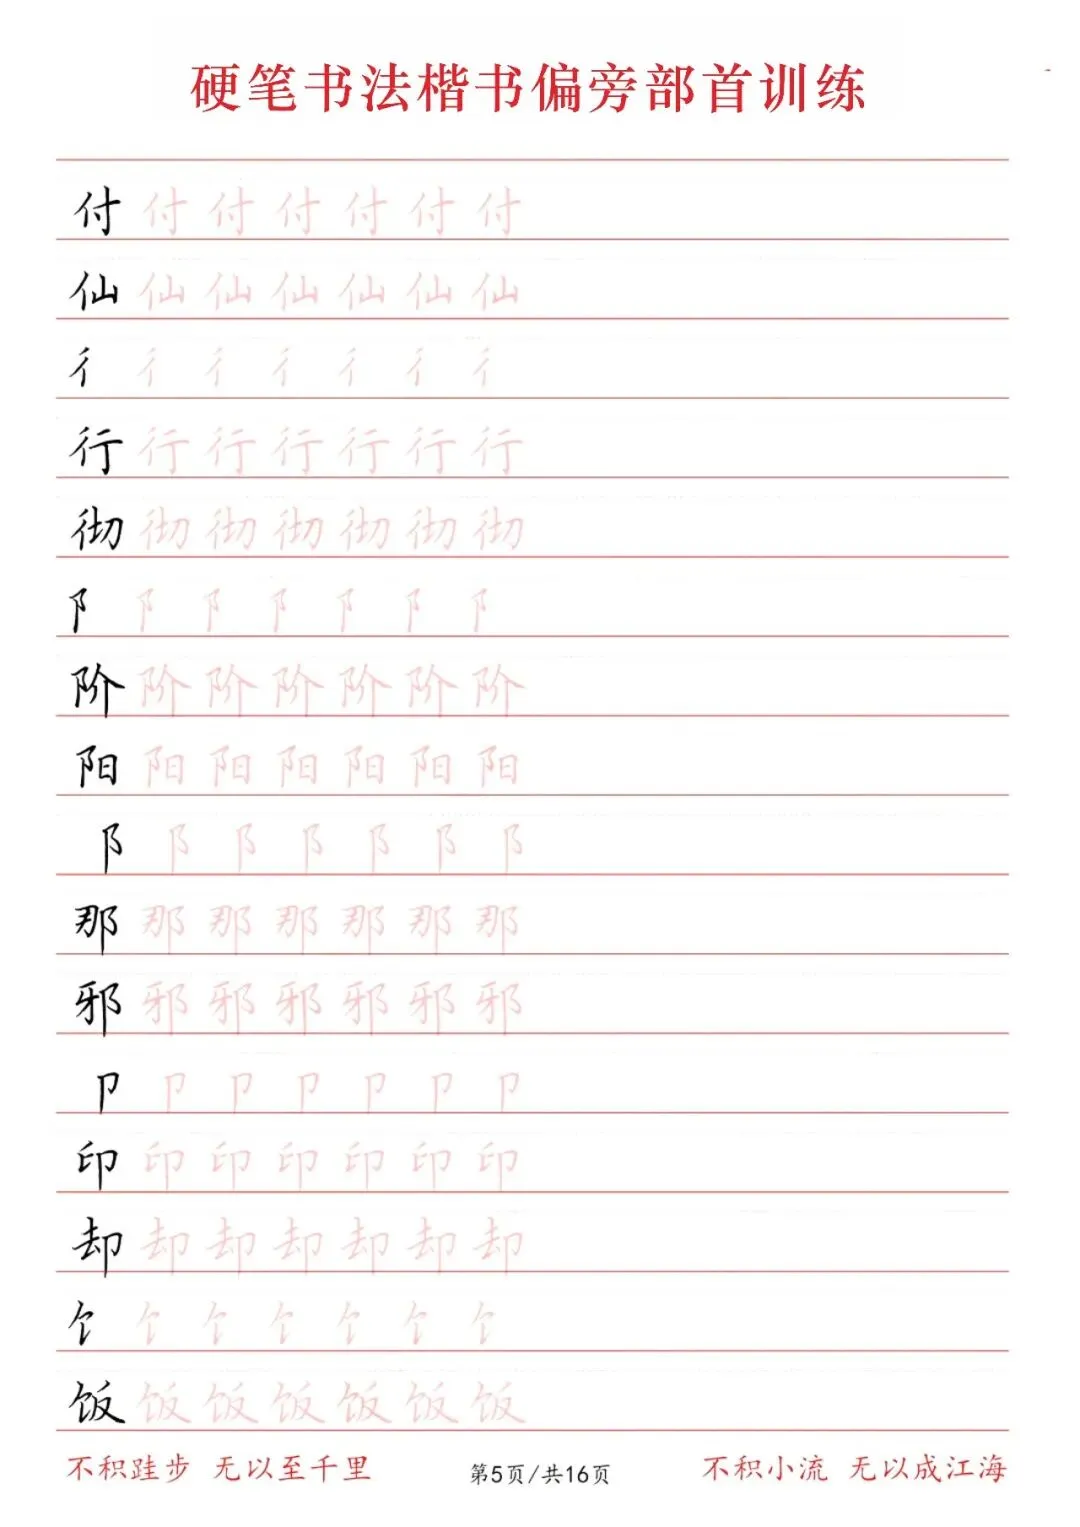 硬笔书法楷书偏旁部首训练
付付付付付付付
仙仙仙仙仙仙仙
彳彳彳彳彳彳彳
行行行行行行行
彻彻彻彻彻彻彻
阝阝阝阝阝阝阝
阶阶阶阶阶阶阶
阳阳阳阳阳阳阳
阝阝阝阝阝阝阝
那那那那那那那
邪邪邪邪邪邪邪
卩卩卩卩卩卩卩
印印印印印印印
却却却却却却却
饣饣饣饣饣饣饣
饭饭饭饭饭饭饭
不积跬步 无以至千里 第5页/共16页 不积小流 无以成江海